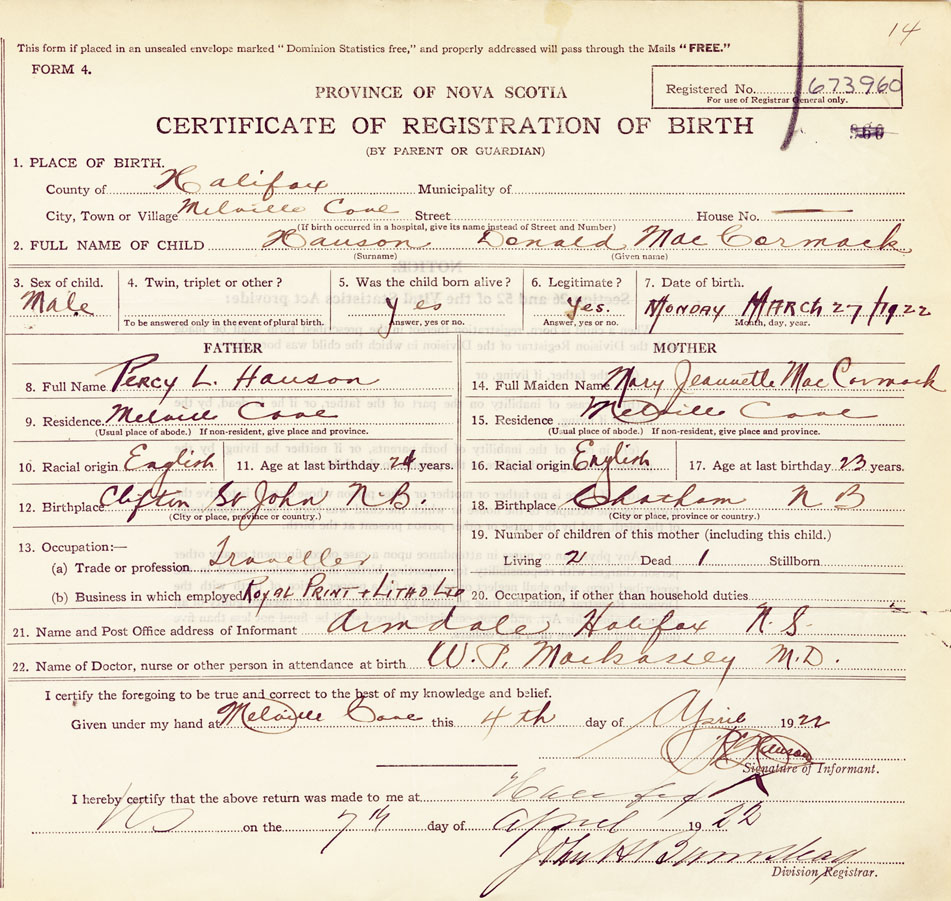 14
This form if placed in an unsealed envelope marked "Dominion Statistics free," and properly addressed will pass through the Mails "FREE."
FORM 4.
Registered No. 673960
For use of Registrar General only.
PROVINCE OF NOVA SCOTIA
CERTIFICATE OF REGISTRATION OF BIRTH
960
(BY PARENT OR GUARDIAN)
1. PLACE OF BIRTH.
County of Halifax Municipality of
City, Town or Village Melville Cove Street House No. —
(If birth occurred in a hospital, give its name instead of Street and Number)
2. FULL NAME OF CHILD Hanson Donald MacCormack
(Surname) (Given name)
3. Sex of child. 4. Twin, triplet or other? 5. Was the child born alive? 6. Legitimate? 7. Date of birth.
Male yes Yes. MONDAY MARCH 27/1922
To be answered only in the event of plural birth. Answer, yes or no. Answer, yes or no. Month, day, year.
FATHER MOTHER
8. Full Name Percy L. Hanson 14. Full Maiden Name Mary Jeannette MacCormack
9. Residence Melville Cove 15. Residence Melville Cove
(Usual place of abode.) If non-resident, give place and province. (Usual place of abode.) If non-resident, give place and province.
10. Racial origin English 11. Age at last birthday 24 years. 16. Racial origin English 17. Age at last birthday 23 years.
12. Birthplace Clifton St John N.B. 18. Birthplace Chatham N B
(City or place, province or country.) (City or place, province or country.)
13. Occupation:— 19. Number of children of this mother (including this child.)
(a) Trade or profession Traveller Living 2 Dead 1 Stillborn
(b) Business in which employed ROYAL PRINT + LITHO LTD 20. Occupation, if other than household duties
21. Name and Post Office address of Informant Armdale Halifax N.S.
22. Name of Doctor, nurse or other person in attendance at birth W. P. M.D.
I certify the foregoing to be true and correct to the best of my knowledge and belief.
Given under my hand at Melville Cove this 4th day of April 1922
Hanson
Signature of Informant.
I hereby certify that the above return was made to me at Halifax
NS on the 7th day of April 1922
John
Division Registrar.